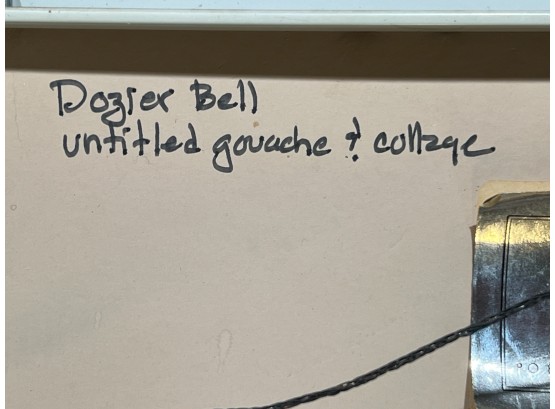 Dozier Bell
untitled gouache & collage